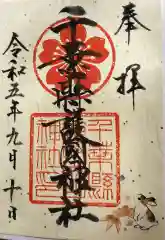 奉拝
千葉縣護國神社
令和五年九月十日
千葉縣
神社印